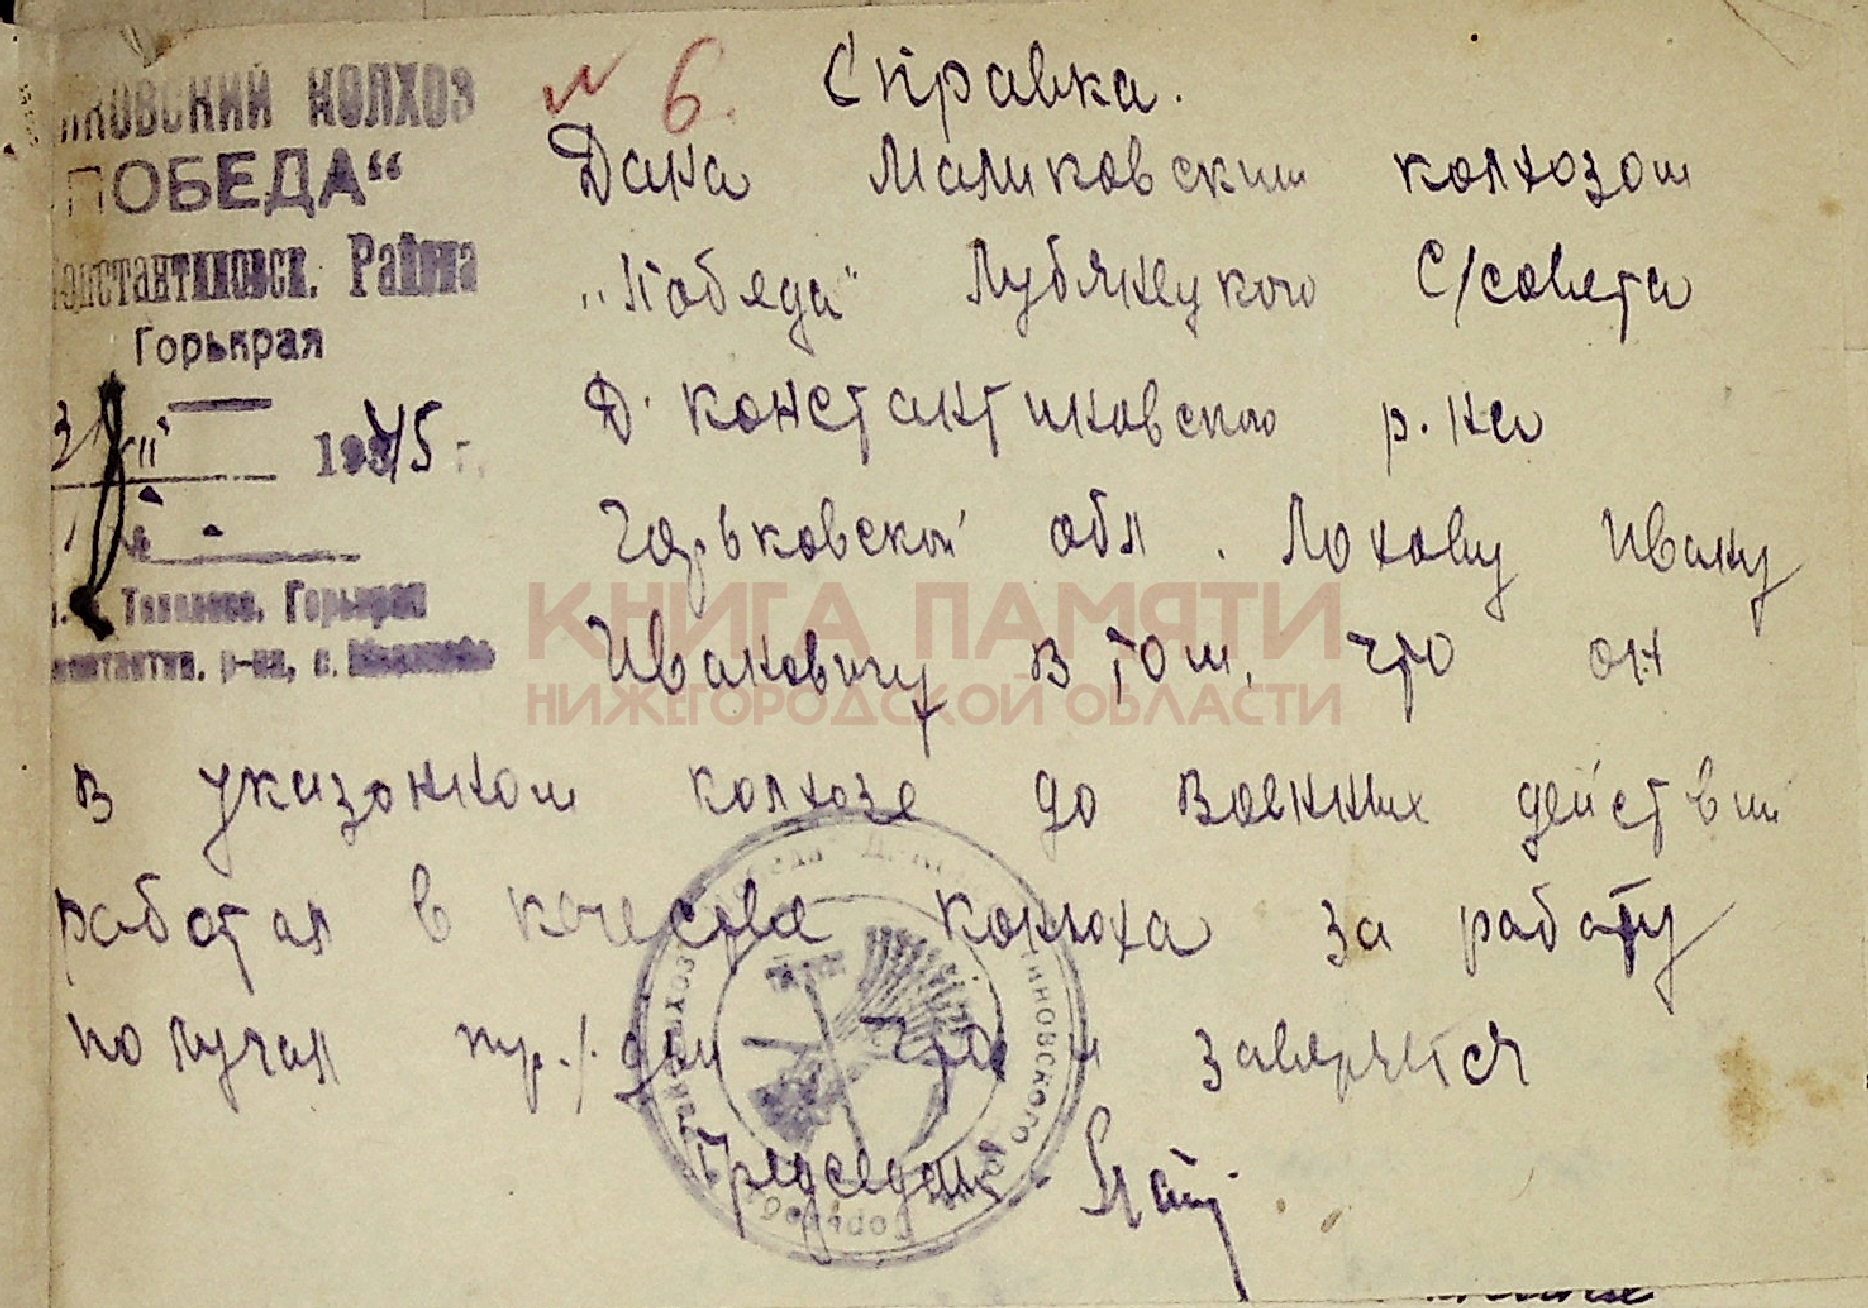 КОВСКИЙ КОЛХОЗ
ПОБЕДА“
Константиновск. Района
Горькрая
1945 г.
Горькрая
р-на, с.
№ 6.
Справка.
Дана Маликовским колхозом
„Победа“ Лубянецкого С/совета
Д. константиновского р.на
Горьковской обл. Лохову Ивану
Ивановичу в том, что он
в указонном колхозе до военных действий
работал в качесве конюха за работу
получал тр./дни что и заверяется
Председат.
ТИНОВСКОГО
КНИГА ПАМЯТИ
НИЖЕГОРОДСКОЙ ОБЛАСТИ